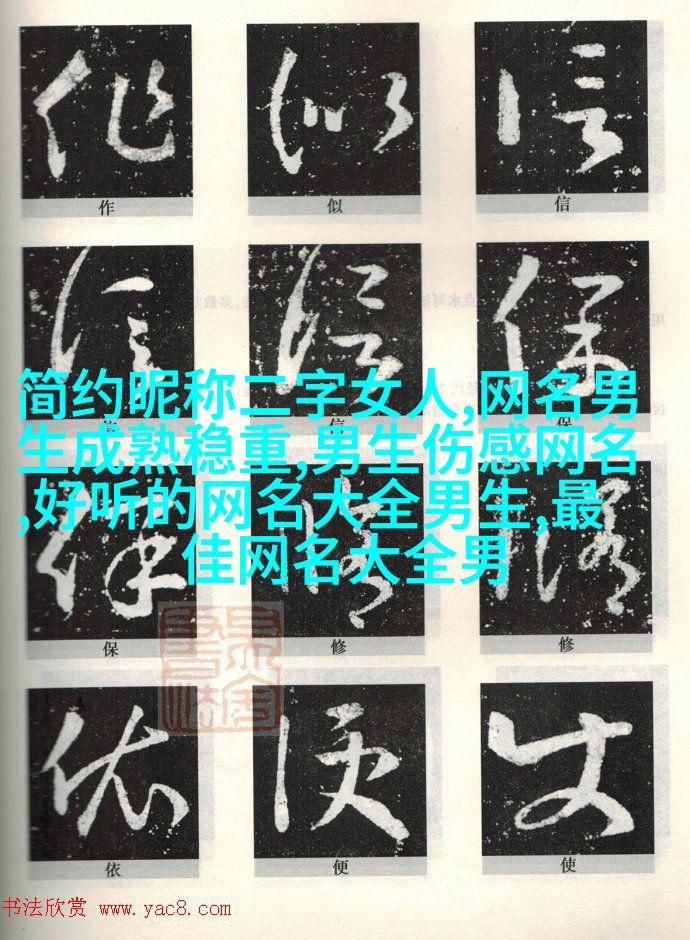 作 似 信
作 似 信
信 信 保
简约昵称二字女人,网名男
生成熟稳重,男生伤感网名
,好听的网名大全男生,最
佳网名大全男
保 修 修
保 修 修
依 便 使
依 便 使
书法欣赏 www.yac8.com